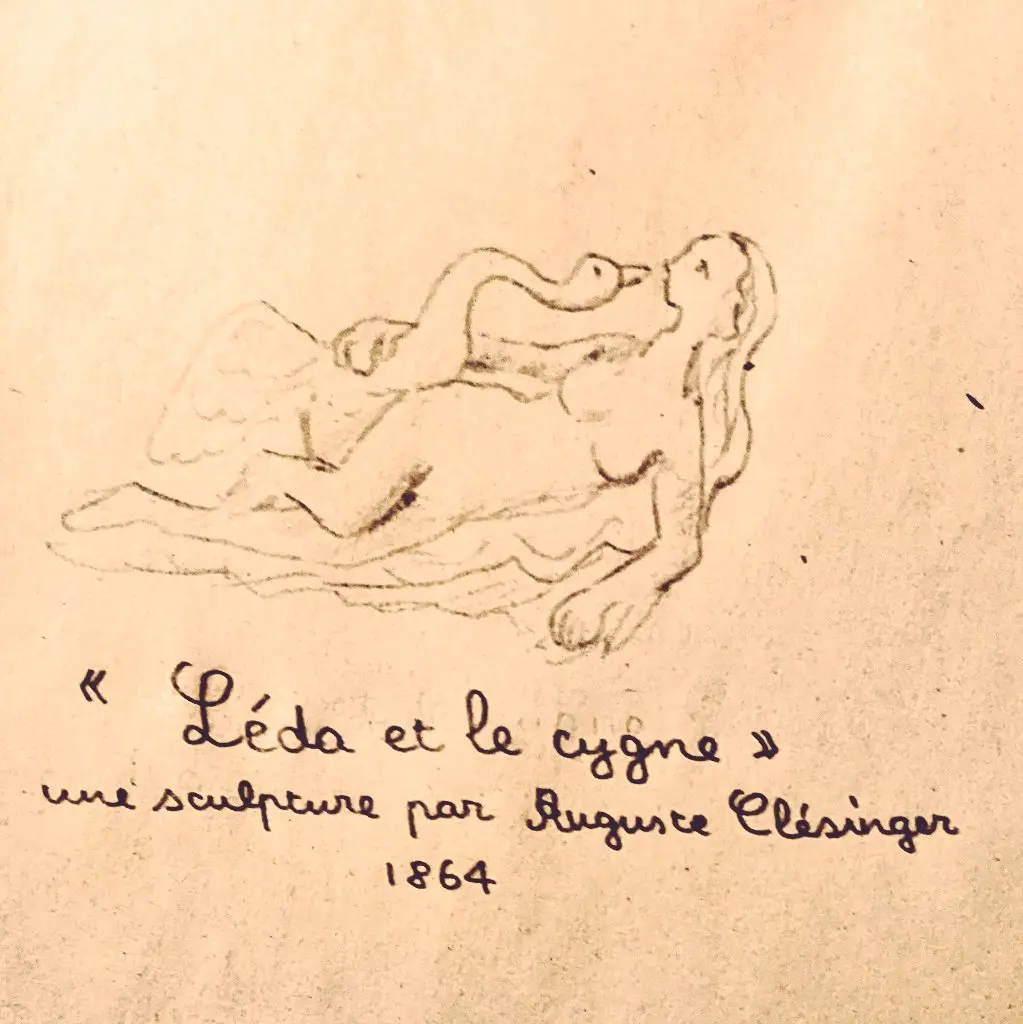 « Léda et le cygne »
une sculpture par Auguste Clésinger
1864